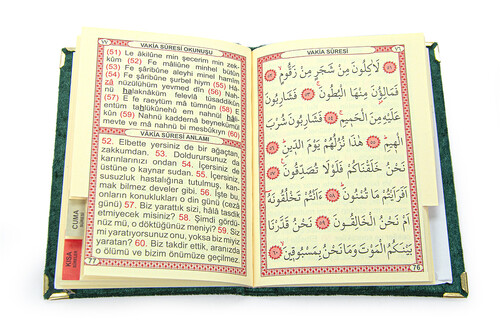 ٧٧
VAKİA SÛRESİ OKUNUŞU
(51) Le âkilûne min şecerim min zek-
kûm (52) Fe mâliûne minhel bütûn
(53) Fe şâribûne aleyhi minel hamîm
(54) Fe şâribûne şurbel hîym (55) Hâ-
zâ nüzülühüm yevmed dîn (56) Nah-
nü halaknâküm felevlâ tüsaddikûn
(57) E fe raeytüm mâ tümnûn (58) E
entüm tahlükûnehû em nahnül hâli-
kûn (59) Nahnü kaddernâ beynekümül
mevte ve mâ nahnü bi mesbûkıyn (60)
VAKİA SÛRESİ ANLAMI
52. Elbette yersiniz de bir ağaçtan,
zakkumdan. 53. Doldurursunuz da
karınlarınızı ondan 54. İçersiniz de
üstüne o kaynar sudan. 55. İçersiniz
susuzluk hastalığına tutulmuş, kan-
mak bilmez develer gibi. 56. İşte bu,
onların konuklukları o din günü (ceza
günü) 57. Biz yarattık sizi, hâlâ tasdik
etmiyecek misiniz? 58. Şimdi gördü-
nüz mü, o döktüğünüz meniyi? 59. Siz
mi yaratıyorsunuz onu, yoksa biz miyiz
yaratan? 60. Biz takdir ettik, aranızda
o ölümü ve bizim önümüze geçilmez.
77
CUMA
KISA
VAKİA SÛRESİ
٧٦
لَاٰكِلُونَ مِنْ شَجَرٍ مِنْ زَقُّومٍ ﴿٥٢﴾
فَمَالِؤُ۫نَ مِنْهَا الْبُطُونَ ﴿٥٣﴾ فَشَارِبُونَ
عَلَيْهِ مِنَ الْحَمِيمِ ﴿٥٤﴾ فَشَارِبُونَ شُرْبَ
الْهِيمِ ﴿٥٥﴾ هٰذَا نُزُلُهُمْ يَوْمَ الدِّينِ ﴿٥٦﴾
نَحْنُ خَلَقْنَاكُمْ فَلَوْلَا تُصَدِّقُونَ ﴿٥٧﴾
اَفَرَاَيْتُمْ مَا تُمْنُونَ ﴿٥٨﴾ ءَاَنْتُمْ تَخْلُقُونَهُٓ
اَمْ نَحْنُ الْخَالِقُونَ ﴿٥٩﴾ نَحْنُ قَدَّرْنَا
بَيْنَكُمُ الْمَوْتَ وَمَا نَحْنُ بِمَسْبُوقِينَ ﴿٦٠﴾
76